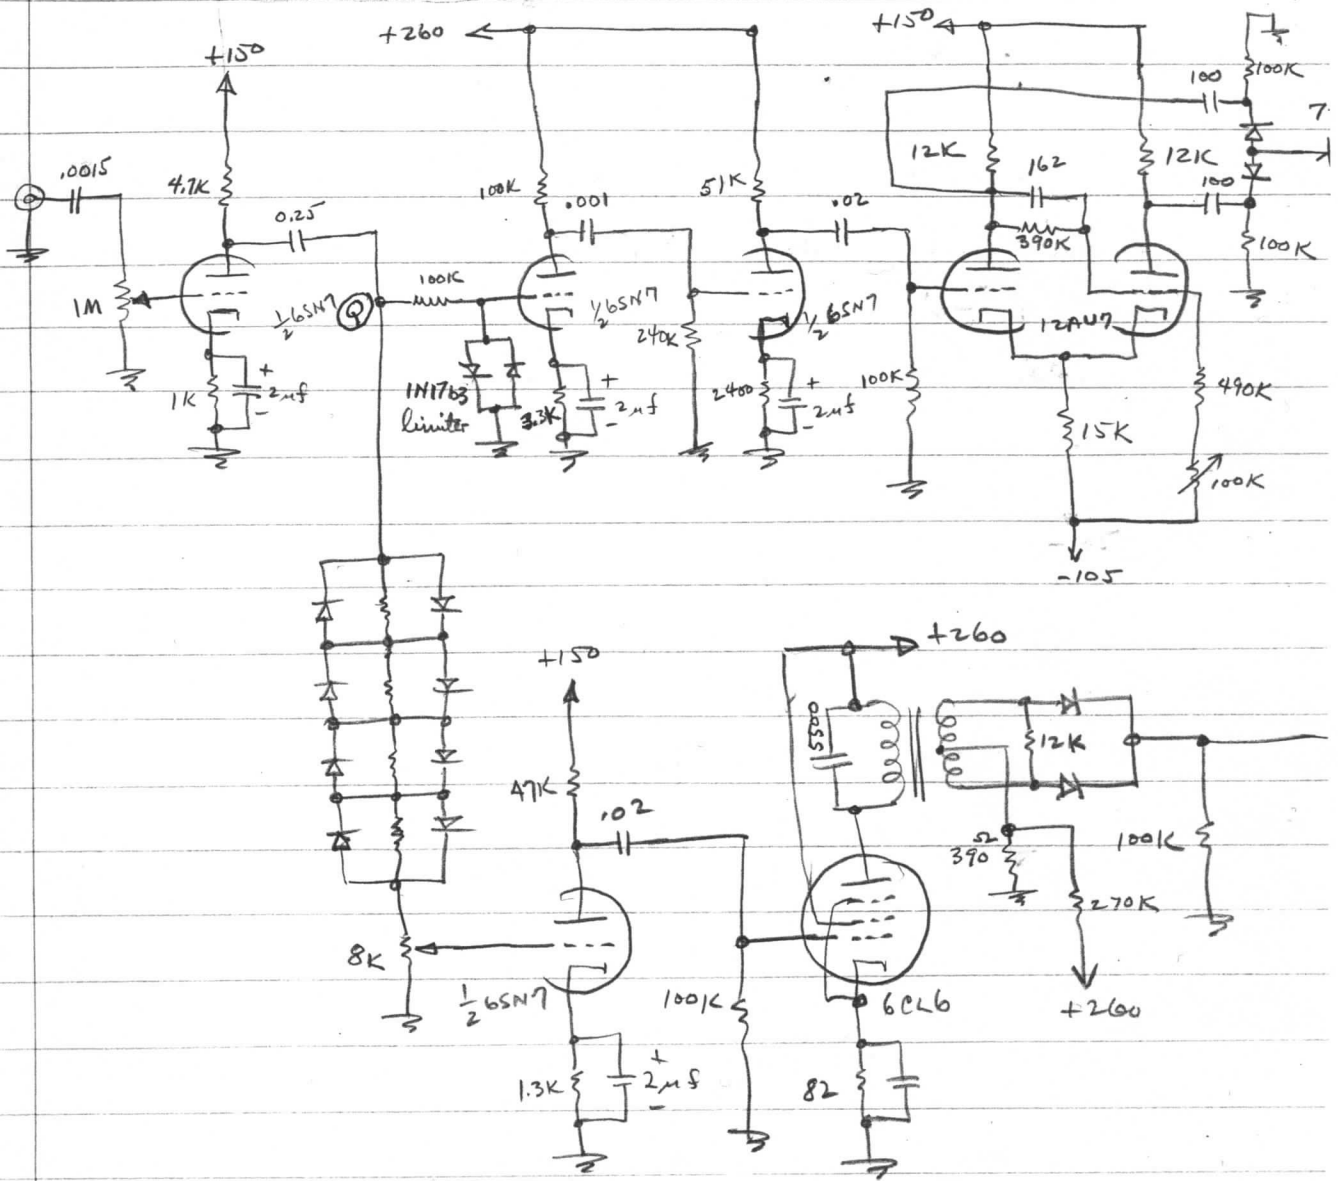 +260
+150
+150
100K
100
7
.0015
4.7K
0.25
100K
.001
51K
.02
12K
162
12K
100
390K
100K
1M
½ 6SN7
Q
100K
½ 6SN7
240K
½ 6SN7
12AU7
1K
+
2µf
-
1N1763
limiter
3.3K
+
2µf
-
2400
+
2µf
-
100K
15K
490K
100K
-105
+150
+260
5500
47K
.02
12K
390 Ω
100K
270K
8K
½ 6SN7
100K
6CL6
+260
1.3K
+
2µf
-
82